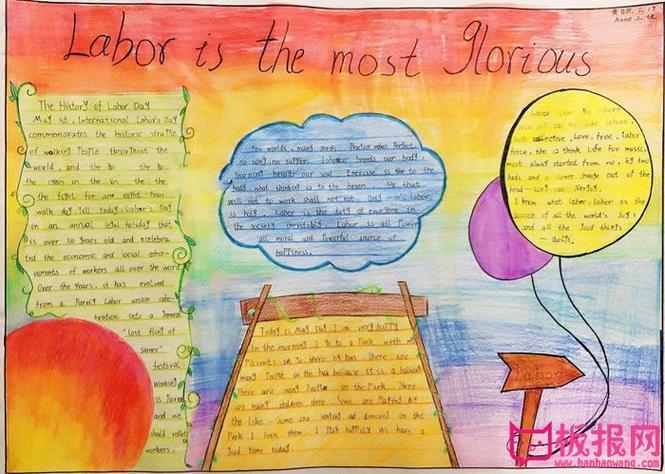 Labor is the most Glorious
Anne
The History of Labor Day
May 1st, International Labor's Day
commemorates the historic struggle
of walking People throughout the
world, and the to the to
the 1880s on the in the the
the fight for an eight-hour
walk day. Till today, Labor's Day
is an annual legal holiday that
is over 100 years old and
ted the economic and social
vements of workers all over the word.
Over the Years, it has evolved
from a Purely Labor union
bration into a General
"last fling of
Summer"
festival.
Working
is
and we
should relax
workers.
worlds, many words. Practice makes Perfect.
no song, no supper. Labour breeds our body,
learning breeds our soul. Exercise is the to the
body what thinking is to the brain. He that
will not to work shall not eat. Only men's labor
is holy. Labor is the duty of everyone in
the society inevitably. Labor is all Power
all moral and Powerful source of
happiness.
not collective. Love, free, labor
force, the is think life for music,
most always started from no, by two
head.
I know what labor: labor is the
source of all the world's Joy,
and all the good things
Today is May Day. I am very happy
In the morning I go to a Park with my
Parents. We go there by bus. There are
many People in the bus because it is a holiday
There are many People in the Park. There
are many children there. Some are Playing by
the lake. Some are singing and dancing in the
Park. I Join them. I Play happily. We have a
good time today.
Labor
板报网
www.banbaowang.com